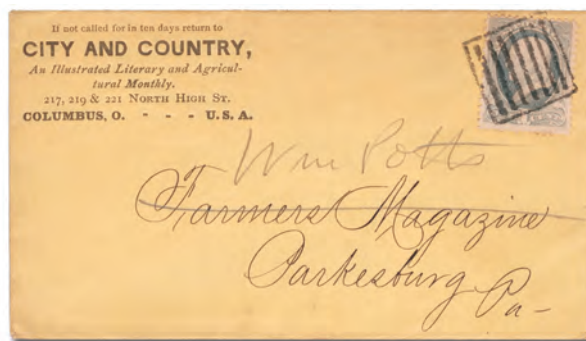 If not called for in ten days return to
CITY AND COUNTRY,
An Illustrated Literary and Agricul-
tural Monthly.
217, 219 & 221 NORTH HIGH ST.
COLUMBUS, O. " - - U. S. A.
Wm Potts
Farmers Magazine
Parkesburg
Pa-